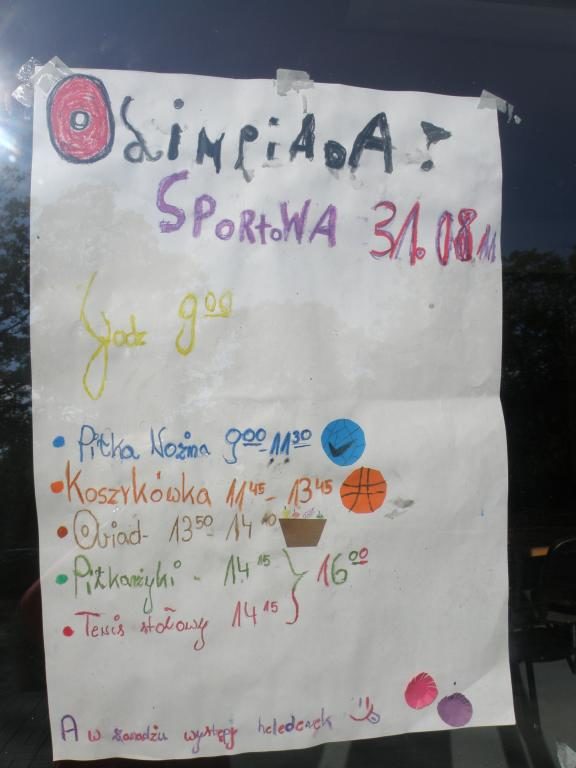 OLIMPIADA!
SPORTOWA 31.08.11
godz 9⁰⁰
• Piłka Nożna 9⁰⁰-11³⁰
• Koszykówka 11⁴⁵ - 13⁴⁵
• Obiad - 13⁵⁰ 14¹⁰
• Piłkarzyki - 14¹⁵ } 16⁰⁰
• Tenis stołowy 14¹⁵
A w występy